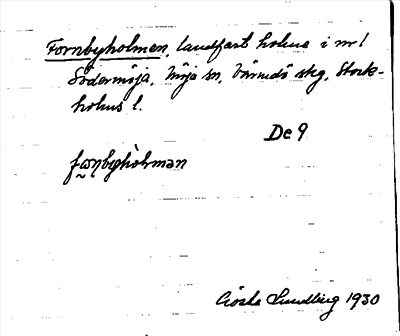 Fornbyholmen, landfast holme i nr 1
Södermöja, Möja sn, Värmdö skg, Stock-
holms l.
De 9
Gösta Lundberg 1930